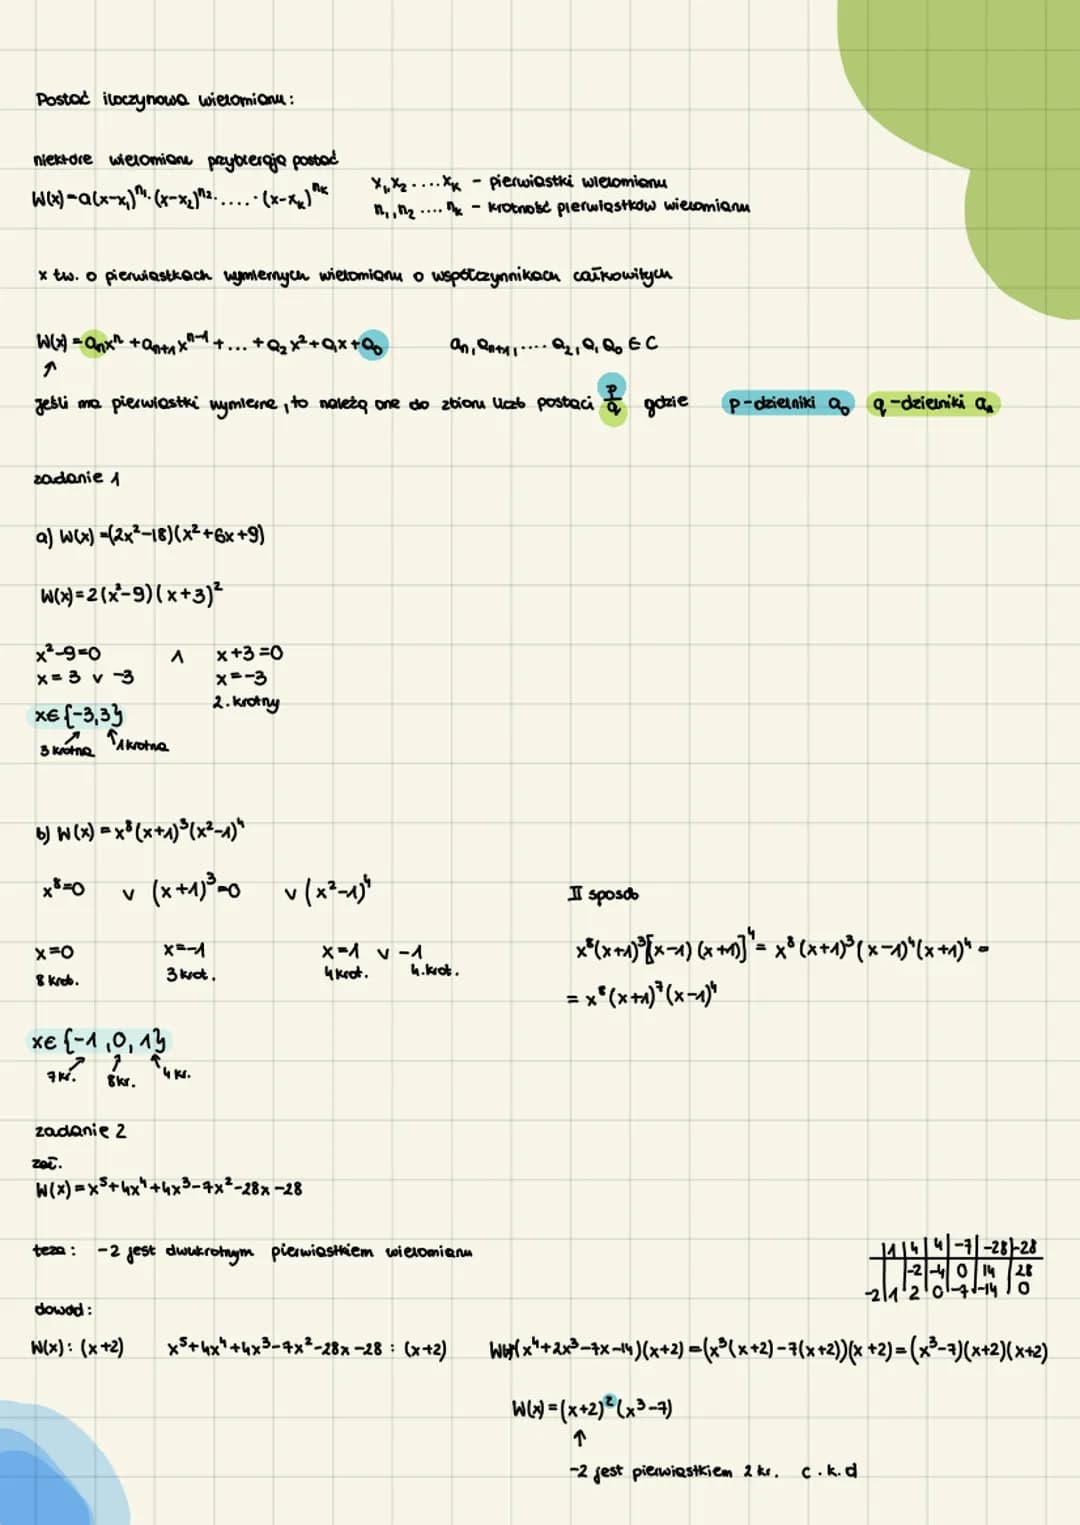 Postać iloczynowa wielomianu:
niektóre wielomiany przybierają postać
W(x)=a(x-x₁)ⁿ¹·(x-x₂)ⁿ²·....·(x-xₖ)ⁿᵏ
x₁,x₂....xₖ - pierwiastki wielomianu
n₁,n₂....nₖ - krotność pierwiastków wielomianu
x tw. o pierwiastkach wymiernych wielomianu o współczynnikach całkowitych
W(x)=aₙxⁿ+aₙ₊₁xⁿ⁻¹+...+a₂x²+a₁x+a₀ aₙ,aₙ₊₁,....a₂,a₁a₀ ∈ C
↑
jeśli ma pierwiastki wymierne, to należą one do zbioru liczb postaci p/q gdzie p-dzielniki a₀ q-dzielniki aₙ
zadanie 1
a) W(x)=(2x²-18)(x²+6x+9)
W(x)=2(x²-9)(x+3)²
x²-9=0 ∧ x+3=0
x=3 ∨ -3 x=-3
2.krotny
x∈{-3,3}
3 krotna 1 krotna
b) W(x)=x⁸(x+1)³(x²-1)⁴
x⁸=0 ∨ (x+1)³=0 ∨ (x²-1)⁴
x=0 x=-1 x=1 ∨ -1
8 krot. 3 krot. 4 krot. 4.krot.
II sposób
x⁸(x+1)³[x-1)(x+1)]⁴= x⁸(x+1)³(x-1)⁴(x+1)⁴=
= x⁸(x+1)⁷(x-1)⁴
x∈{-1,0,1}
7 kr. 8 kr. 4 kr.
zadanie 2
zał.
W(x)=x⁵+4x⁴+4x³-7x²-28x-28
teza: -2 jest dwukrotnym pierwiastkiem wielomianu
|1|4|4|-7|-28|-28
| |-2|-4|0|14|28
-2|1|2|0|-7|-14|0
dowód:
W(x):(x+2) x⁵+4x⁴+4x³-7x²-28x-28 : (x+2) (x⁴+2x³-7x-14)(x+2)=(x³(x+2)-7(x+2))(x+2)=(x³-7)(x+2)(x+2)
W(x)=(x+2)²(x³-7)
↑
-2 jest pierwiastkiem 2 kr. c.k.d